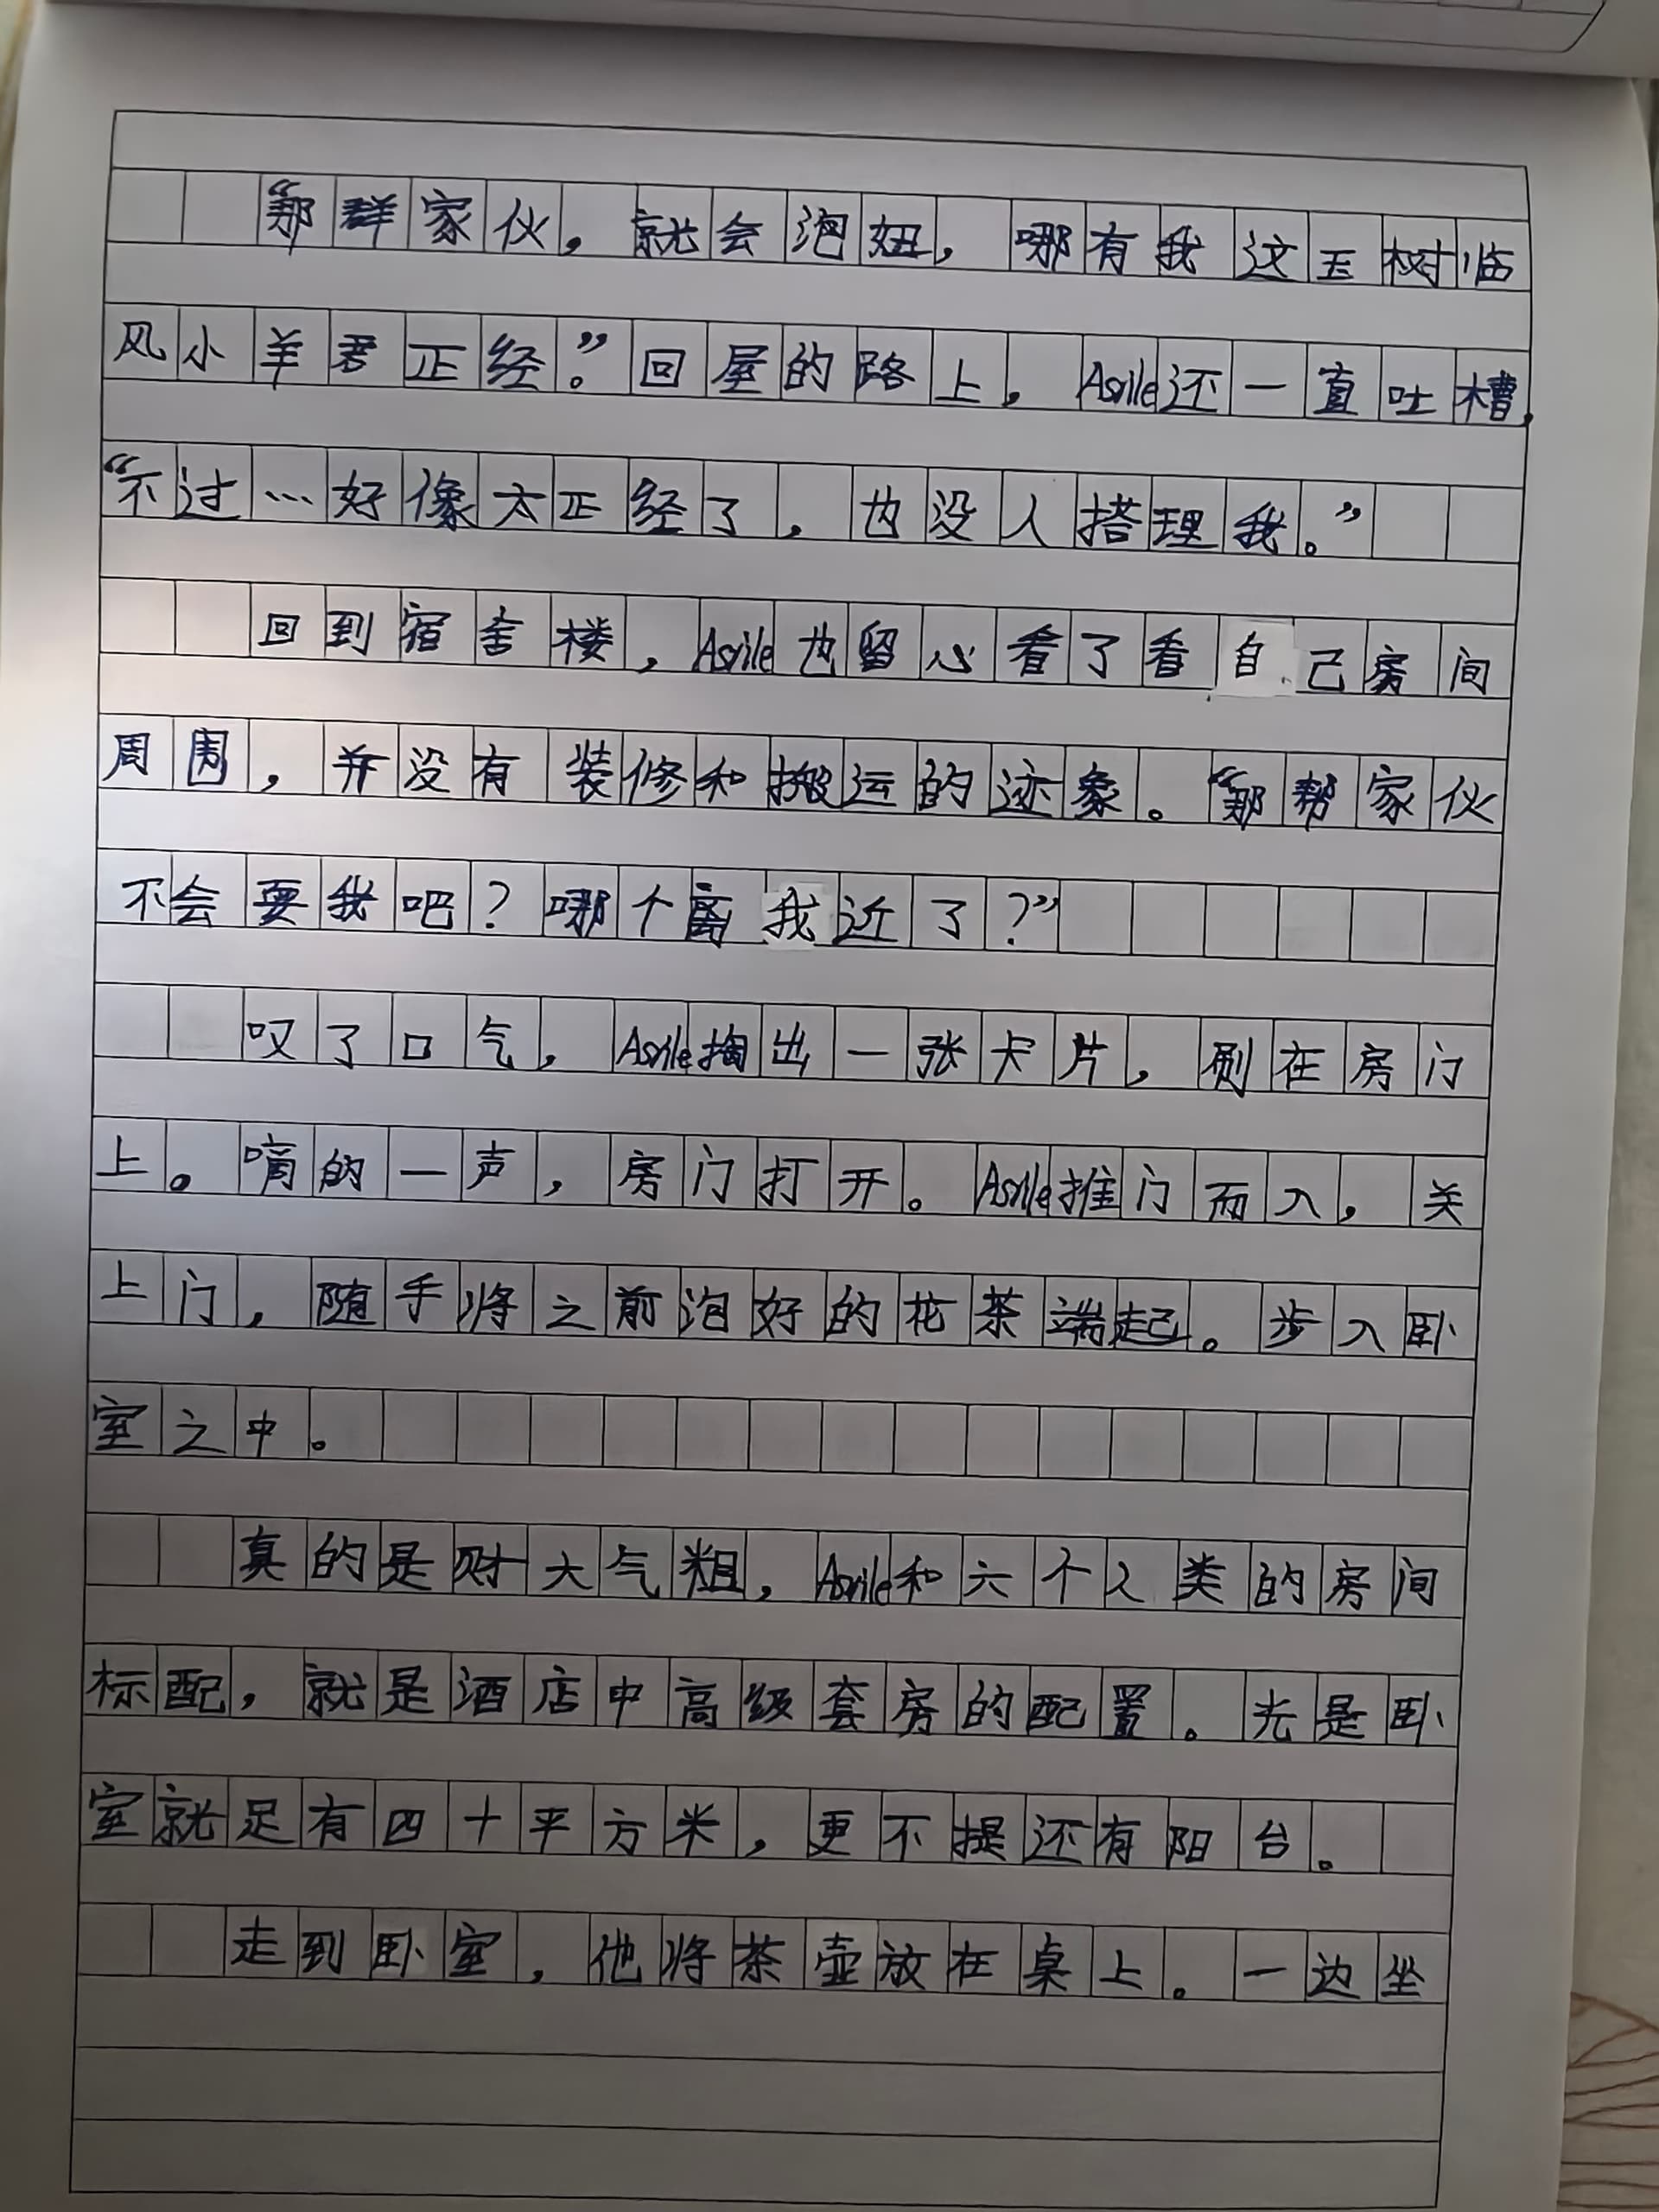 “那群家伙，就会泡妞，哪有我这玉树临
风小羊君正经。”回屋的路上，Asrile还一直吐槽，
“不过…好像太正经了，也没人搭理我。”
回到宿舍楼，Asrile也留心看了看自己房间
周围，并没有装修和搬运的迹象。“那帮家伙
不会耍我吧？哪个离我近了？”
叹了口气，Asrile掏出一张卡片，刷在房门
上。嘀的一声，房门打开。Asrile推门而入，关
上门，随手将之前泡好的花茶端起。步入卧
室之中。
真的是财大气粗，Asrile和六个人类的房间
标配，就是酒店中高级套房的配置。光是卧
室就足有四十平方米，更不提还有阳台。
走到卧室，他将茶壶放在桌上。一边坐